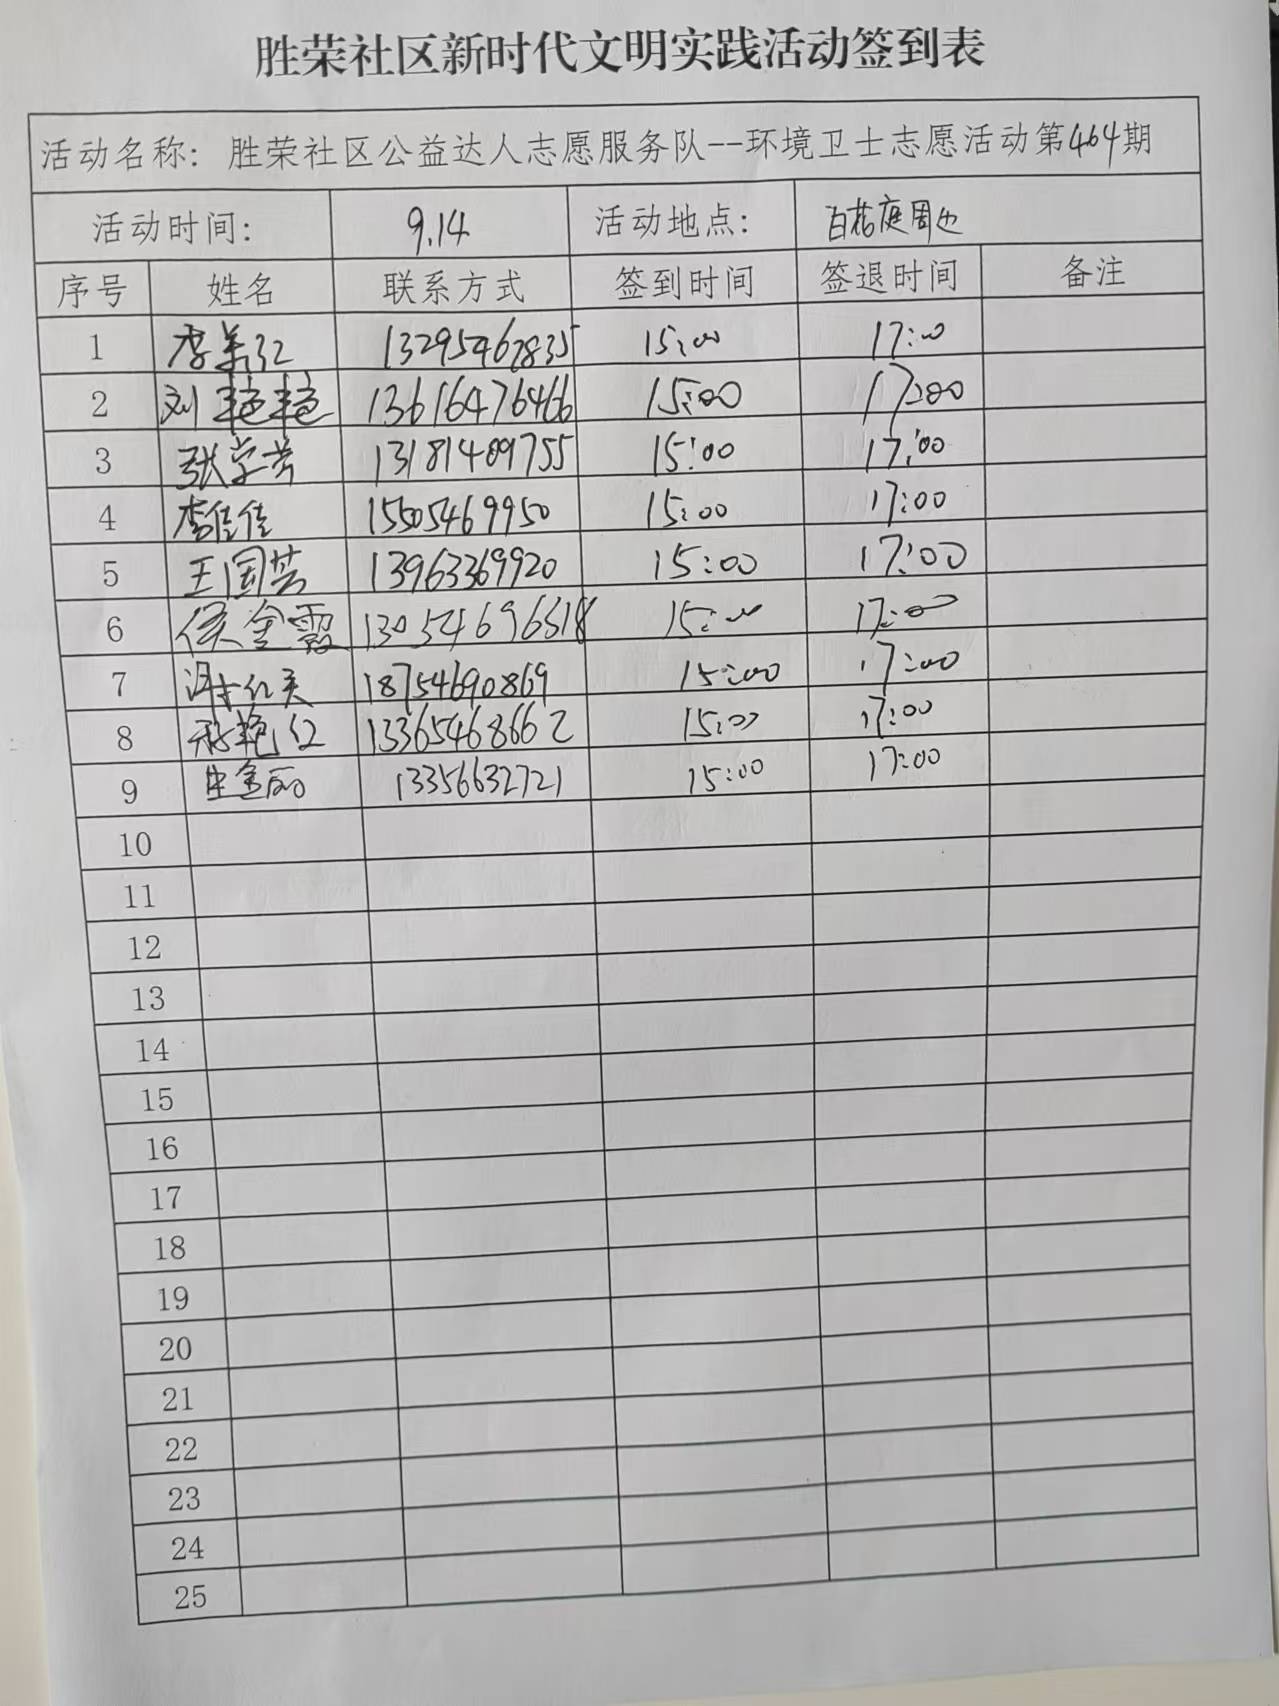 胜荣社区新时代文明实践活动签到表
活动名称：胜荣社区公益达人志愿服务队--环境卫士志愿活动第464期
活动时间： 9.14 活动地点： 百花庭周边
序号 姓名 联系方式 签到时间 签退时间 备注
1 李美红 13295462835 15:00 17:00
2 刘艳艳 13616476466 15:00 17:00
3 张学芳 13181489755 15:00 17:00
4 李佳佳 15505469950 15:00 17:00
5 王国芸 13963369920 15:00 17:00
6 侯金霞 13054696618 15:00 17:00
7 18754690869 15:00 17:00
8 艳红 13365468662 15:00 17:00
9 金丽 13356632721 15:00 17:00
10
11
12
13
14
15
16
17
18
19
20
21
22
23
24
25